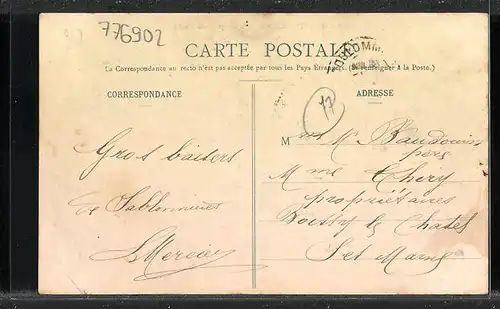 776902
CARTE POSTALE
COULOMM
La Correspondance au recto n'est pas acceptée par tous les Pays Etrangers. (Se renseigner à la Poste.)
CORRESPONDANCE
ADRESSE
17
Gros baisers
de Sablonnières
L Mercier
M me Mr Baudouin
père
Mme Thiry
propriétaires
Boissy le Chatel
Set Marne